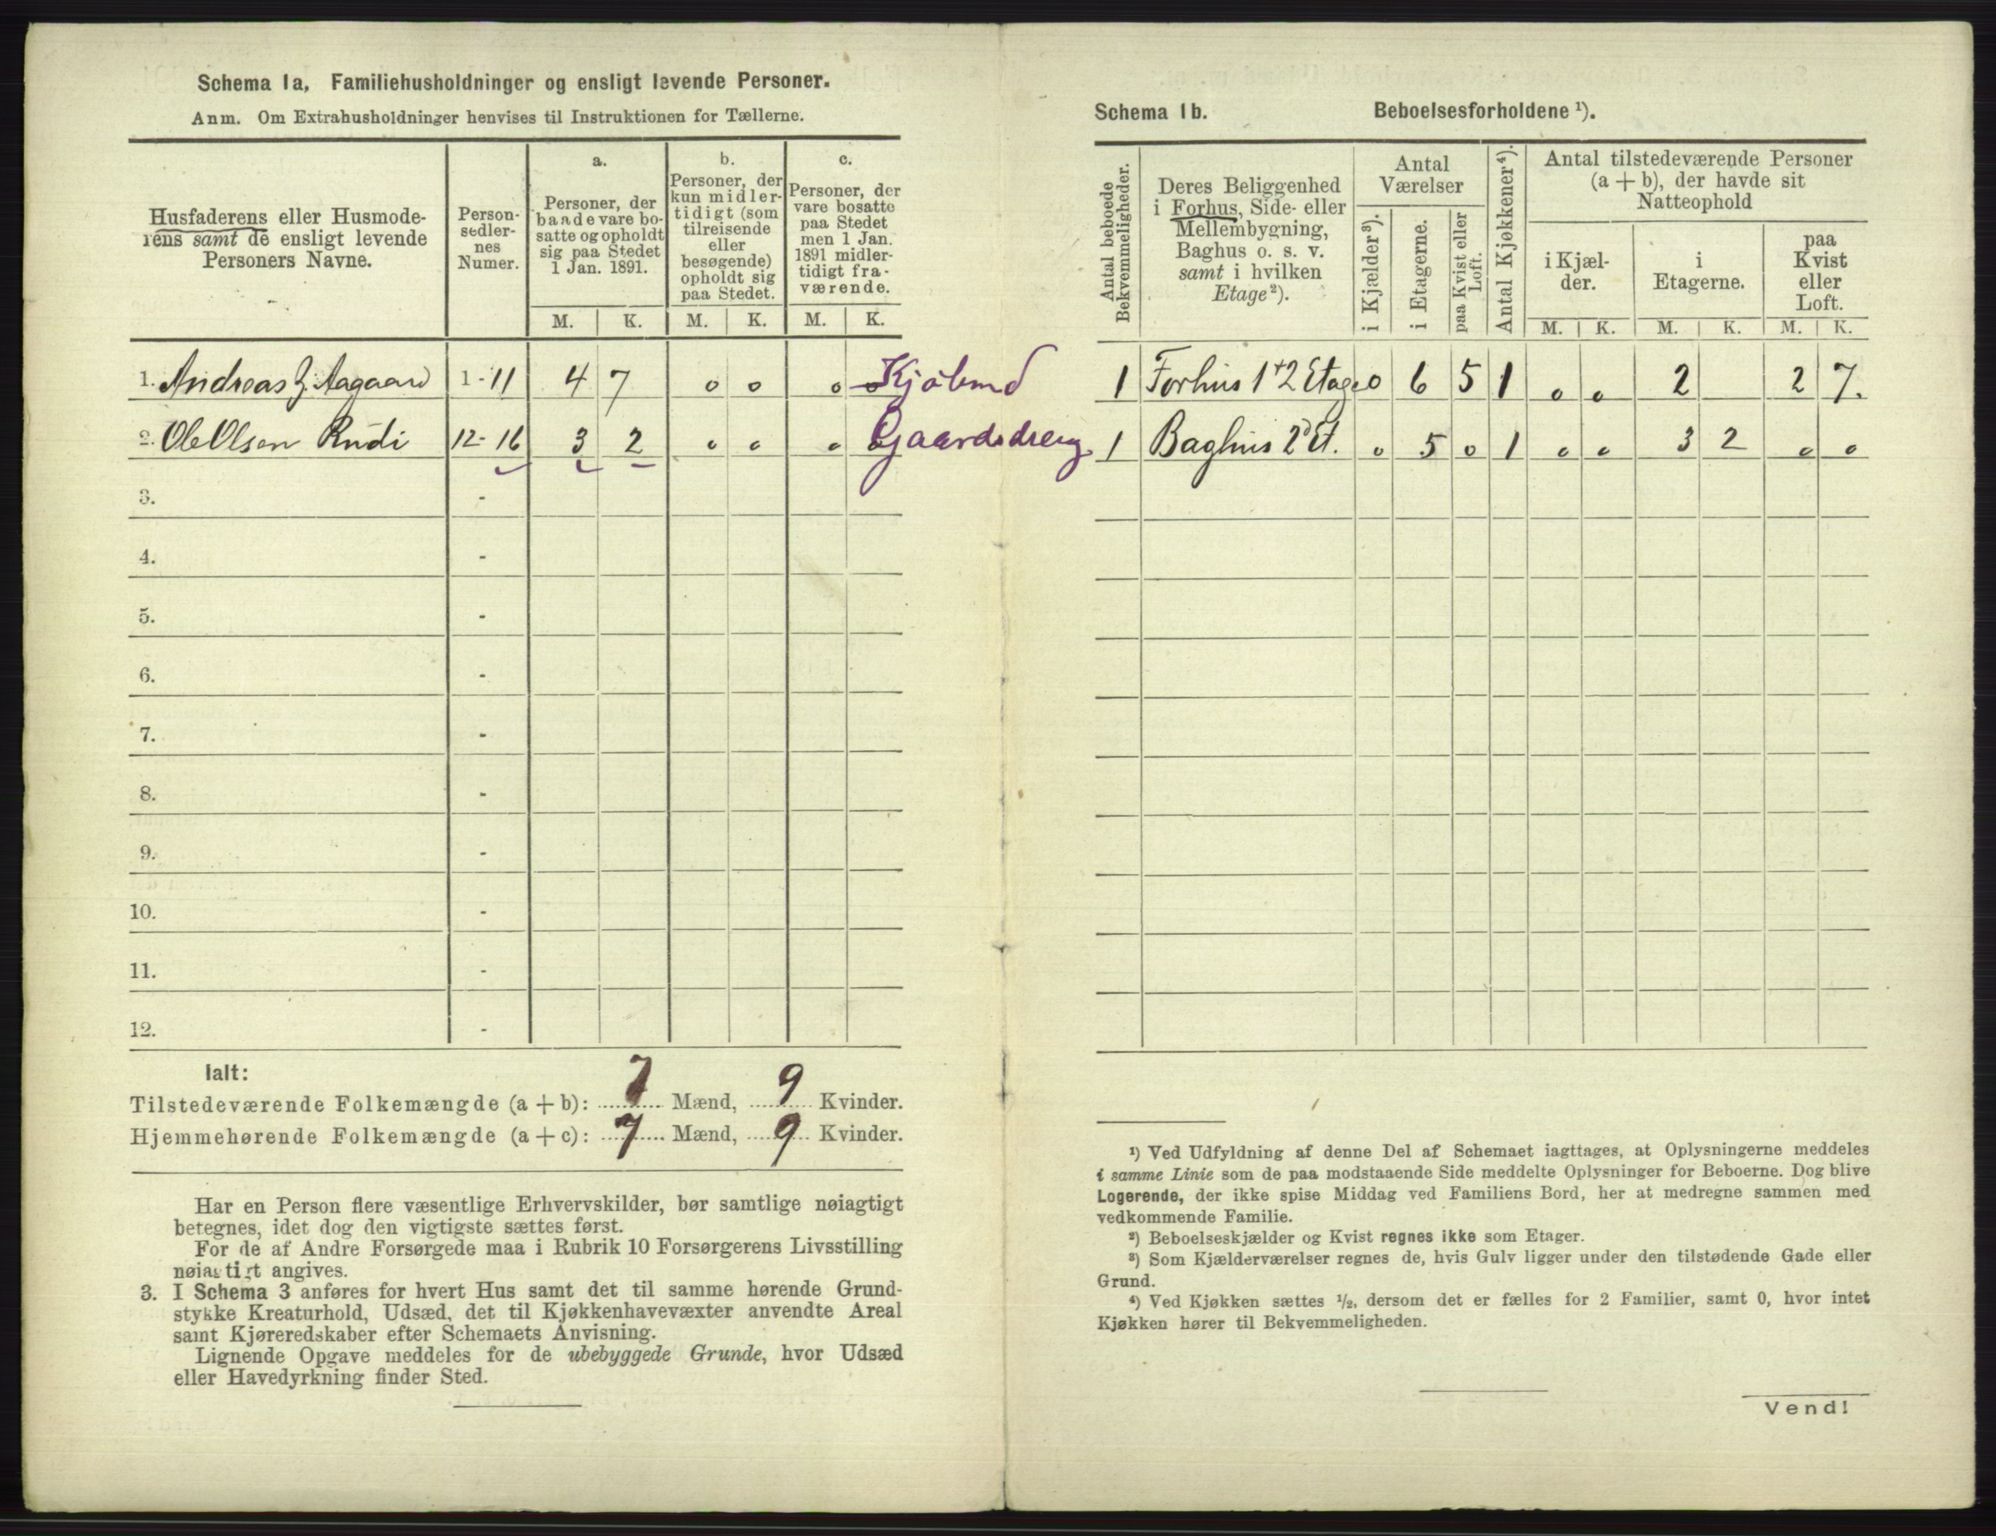 Schema 1a, Familiehusholdninger og ensligt levende Personer.
Anm. Om Extrahusholdninger henvises til Instruktionen for Tællerne.
Husfaderens eller Husmoderens samt de ensligt levende Personers Navne.
Personsedlernes Numer.
a.
Personer, der baade vare bosatte og opholdt sig paa Stedet 1 Jan. 1891.
b.
Personer, der kun midlertidigt (som tilreisende eller besøgende) opholdt sig paa Stedet.
c.
Personer, der vare bosatte paa Stedet men 1 Jan. 1891 midlertidigt fraværende.
M. K. M. K. M. K.
1. Andreas Z. Aagaard 1 - 11 4 7 0 0 0 0 Kjøbmd
2. Ole Olsen Rudi 12 - 16 3 2 0 0 0 0 Gaardsdreng
3. -
4. -
5. -
6. -
7. -
8. -
9. -
10. -
11. -
12. -
Ialt:
Tilstedeværende Folkemængde (a + b): 7 Mænd, 9 Kvinder.
Hjemmehørende Folkemængde (a + c): 7 Mænd, 9 Kvinder.
Har en Person flere væsentlige Erhvervskilder, bør samtlige nøiagtigt
betegnes, idet dog den vigtigste sættes først.
For de af Andre Forsørgede maa i Rubrik 10 Forsørgerens Livsstilling
nøiagtigt angives.
3. I Schema 3 anføres for hvert Hus samt det til samme hørende Grund-
stykke Kreaturhold, Udsæd, det til Kjøkkenhavevæxter anvendte Areal
samt Kjøreredskaber efter Schemaets Anvisning.
Lignende Opgave meddeles for de ubebyggede Grunde, hvor Udsæd
eller Havedyrkning finder Sted.
Schema 1b. Beboelsesforholdene ¹).
Antal beboede Bekvemmeligheder.
Deres Beliggenhed i Forhus, Side- eller Mellembygning, Baghus o. s. v. samt i hvilken Etage²).
Antal Værelser
i Kjælder³).
i Etagerne.
paa Kvist eller Loft.
Antal Kjøkkener⁴).
Antal tilstedeværende Personer (a + b), der havde sit Natteophold
i Kjælder.
i Etagerne.
paa Kvist eller Loft.
M. K. M. K. M. K.
1 Forhus 1+2 Etage 0 6 5 1 0 0 2 2 7.
1 Baghus 2 Et. 0 5 0 1 0 0 3 2 0 0
¹) Ved Udfyldning af denne Del af Schemaet iagttages, at Oplysningerne meddeles
i samme Linie som de paa modstaaende Side meddelte Oplysninger for Beboerne. Dog blive
Logerende, der ikke spise Middag ved Familiens Bord, her at medregne sammen med
vedkommende Familie.
²) Beboelseskjælder og Kvist regnes ikke som Etager.
³) Som Kjælderværelser regnes de, hvis Gulv ligger under den tilstødende Gade eller
Grund.
⁴) Ved Kjøkken sættes ½, dersom det er fælles for 2 Familier, samt 0, hvor intet
Kjøkken hører til Bekvemmeligheden.
Vend!